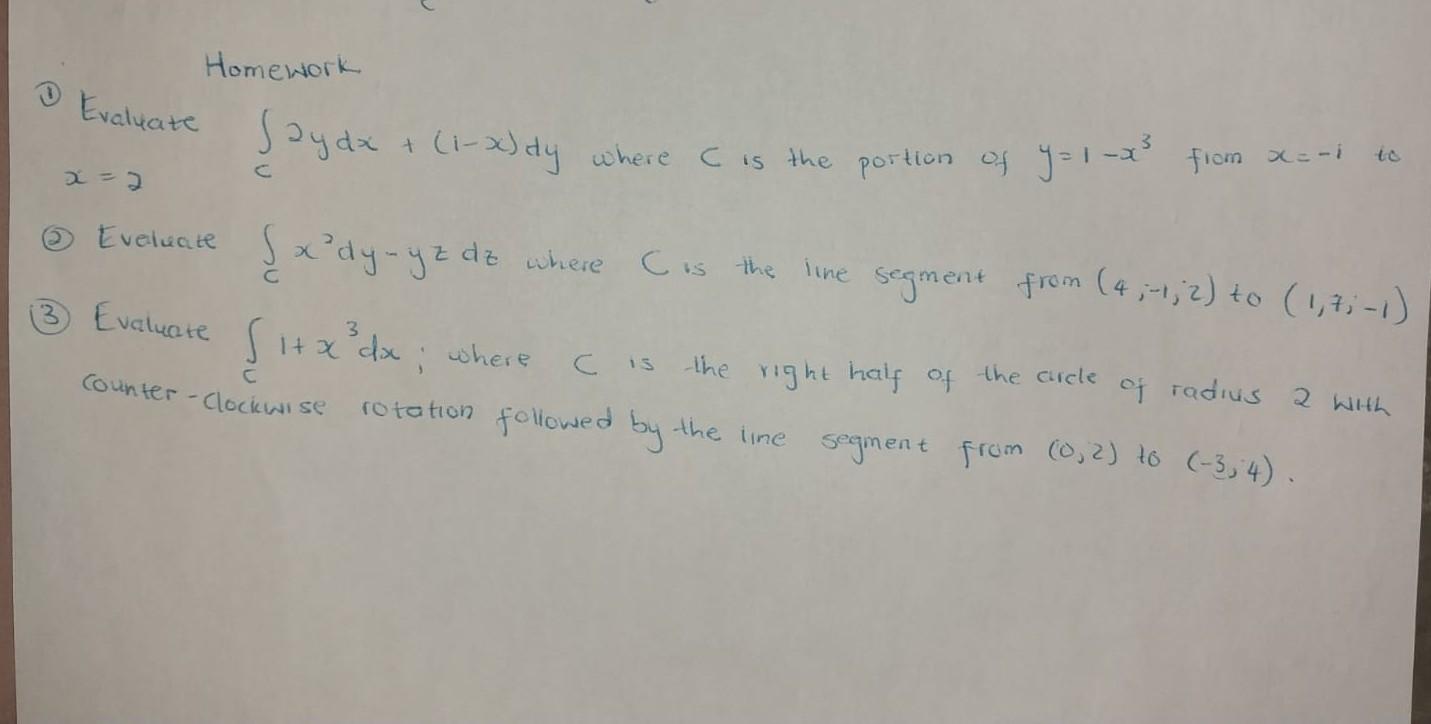 Homework
① Evaluate ∫_C 2y dx + (1-x) dy where C is the portion of y = 1 - x³ from x = -1 to
x = 2
② Evaluate ∫_C x² dy - yz dz where C is the line segment from (4,-1,2) to (1,7,-1)
③ Evaluate ∫_C 1 + x³ dx ; where C is the right half of the circle of radius 2 with
Counter-Clockwise rotation followed by the line segment from (0,2) to (-3,4).